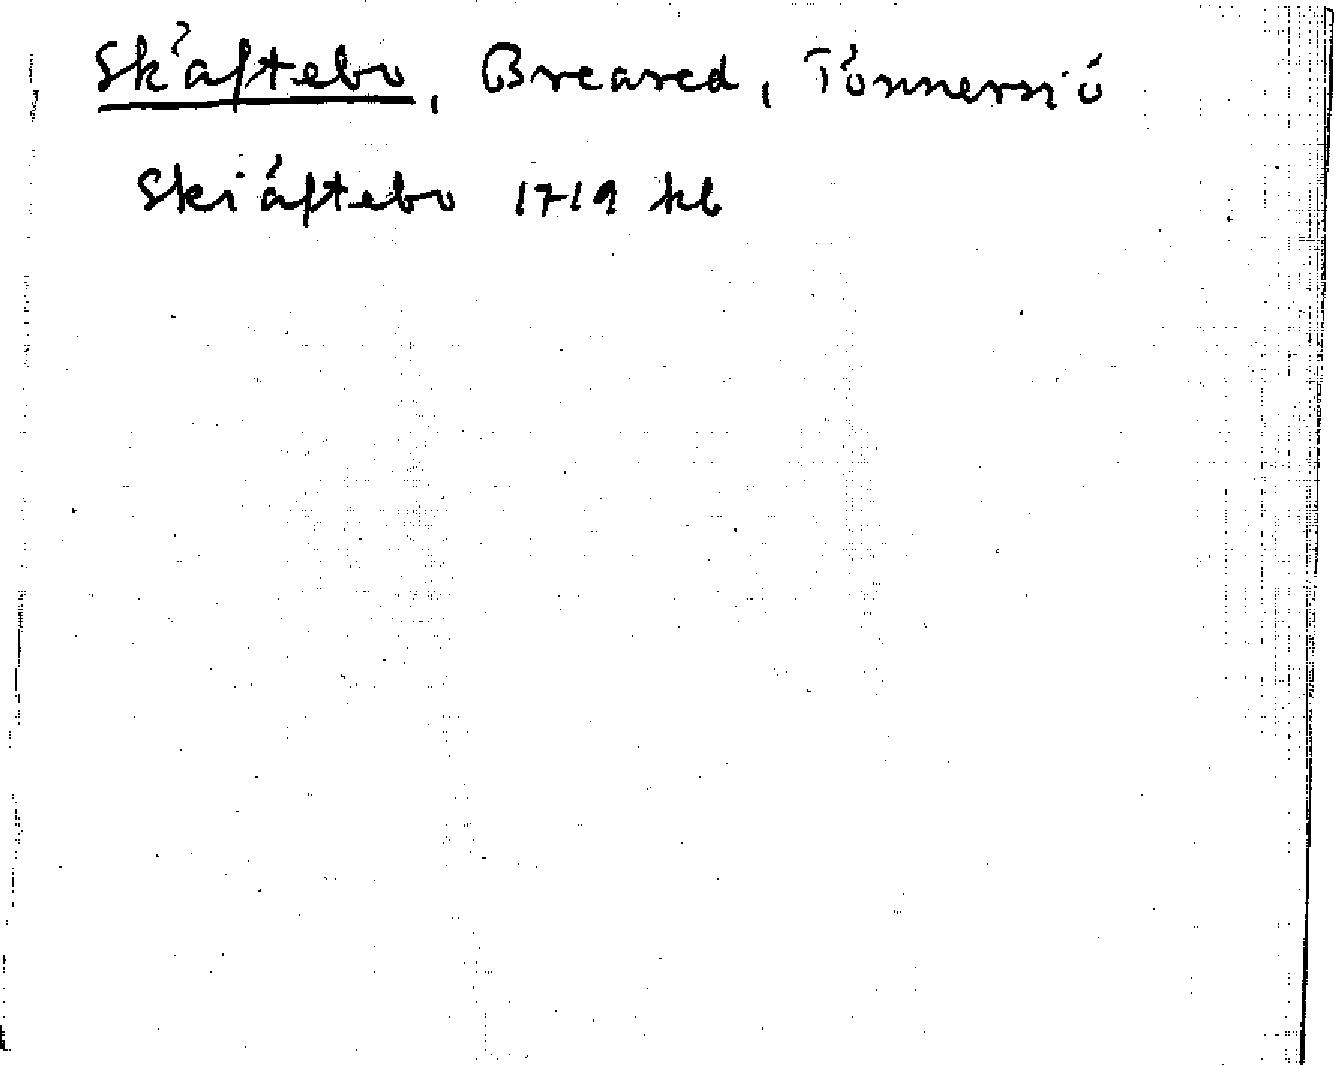 Skäftebo, Breared, Tönnersjö
Skiäftebo 1719 kb